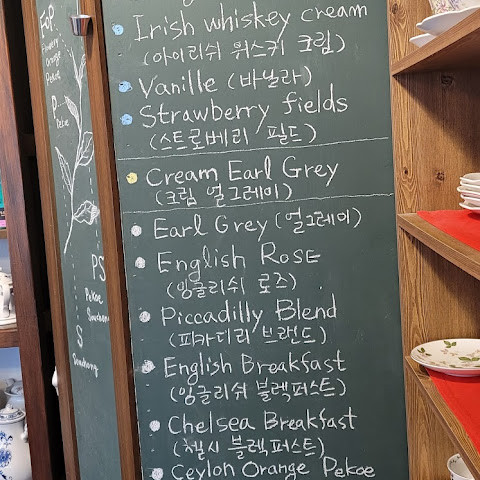 FOP
Flowery
Orange
Pekoe
P
Pekoe
PS
Pekoe
Souchong
S
Souchong
Irish whiskey cream
(아이리쉬 위스키 크림)
Vanille (바닐라)
Strawberry fields
(스트로베리 필드)
Cream Earl Grey
(크림 얼그레이)
Earl Grey (얼그레이)
English Rose
(잉글리쉬 로즈)
Piccadilly Blend
(피카데리 브랜드)
English Breakfast
(잉글리쉬 블렉퍼스트)
Chelsea Breakfast
(첼시 블렉퍼스트)
Ceylon Orange Pekoe